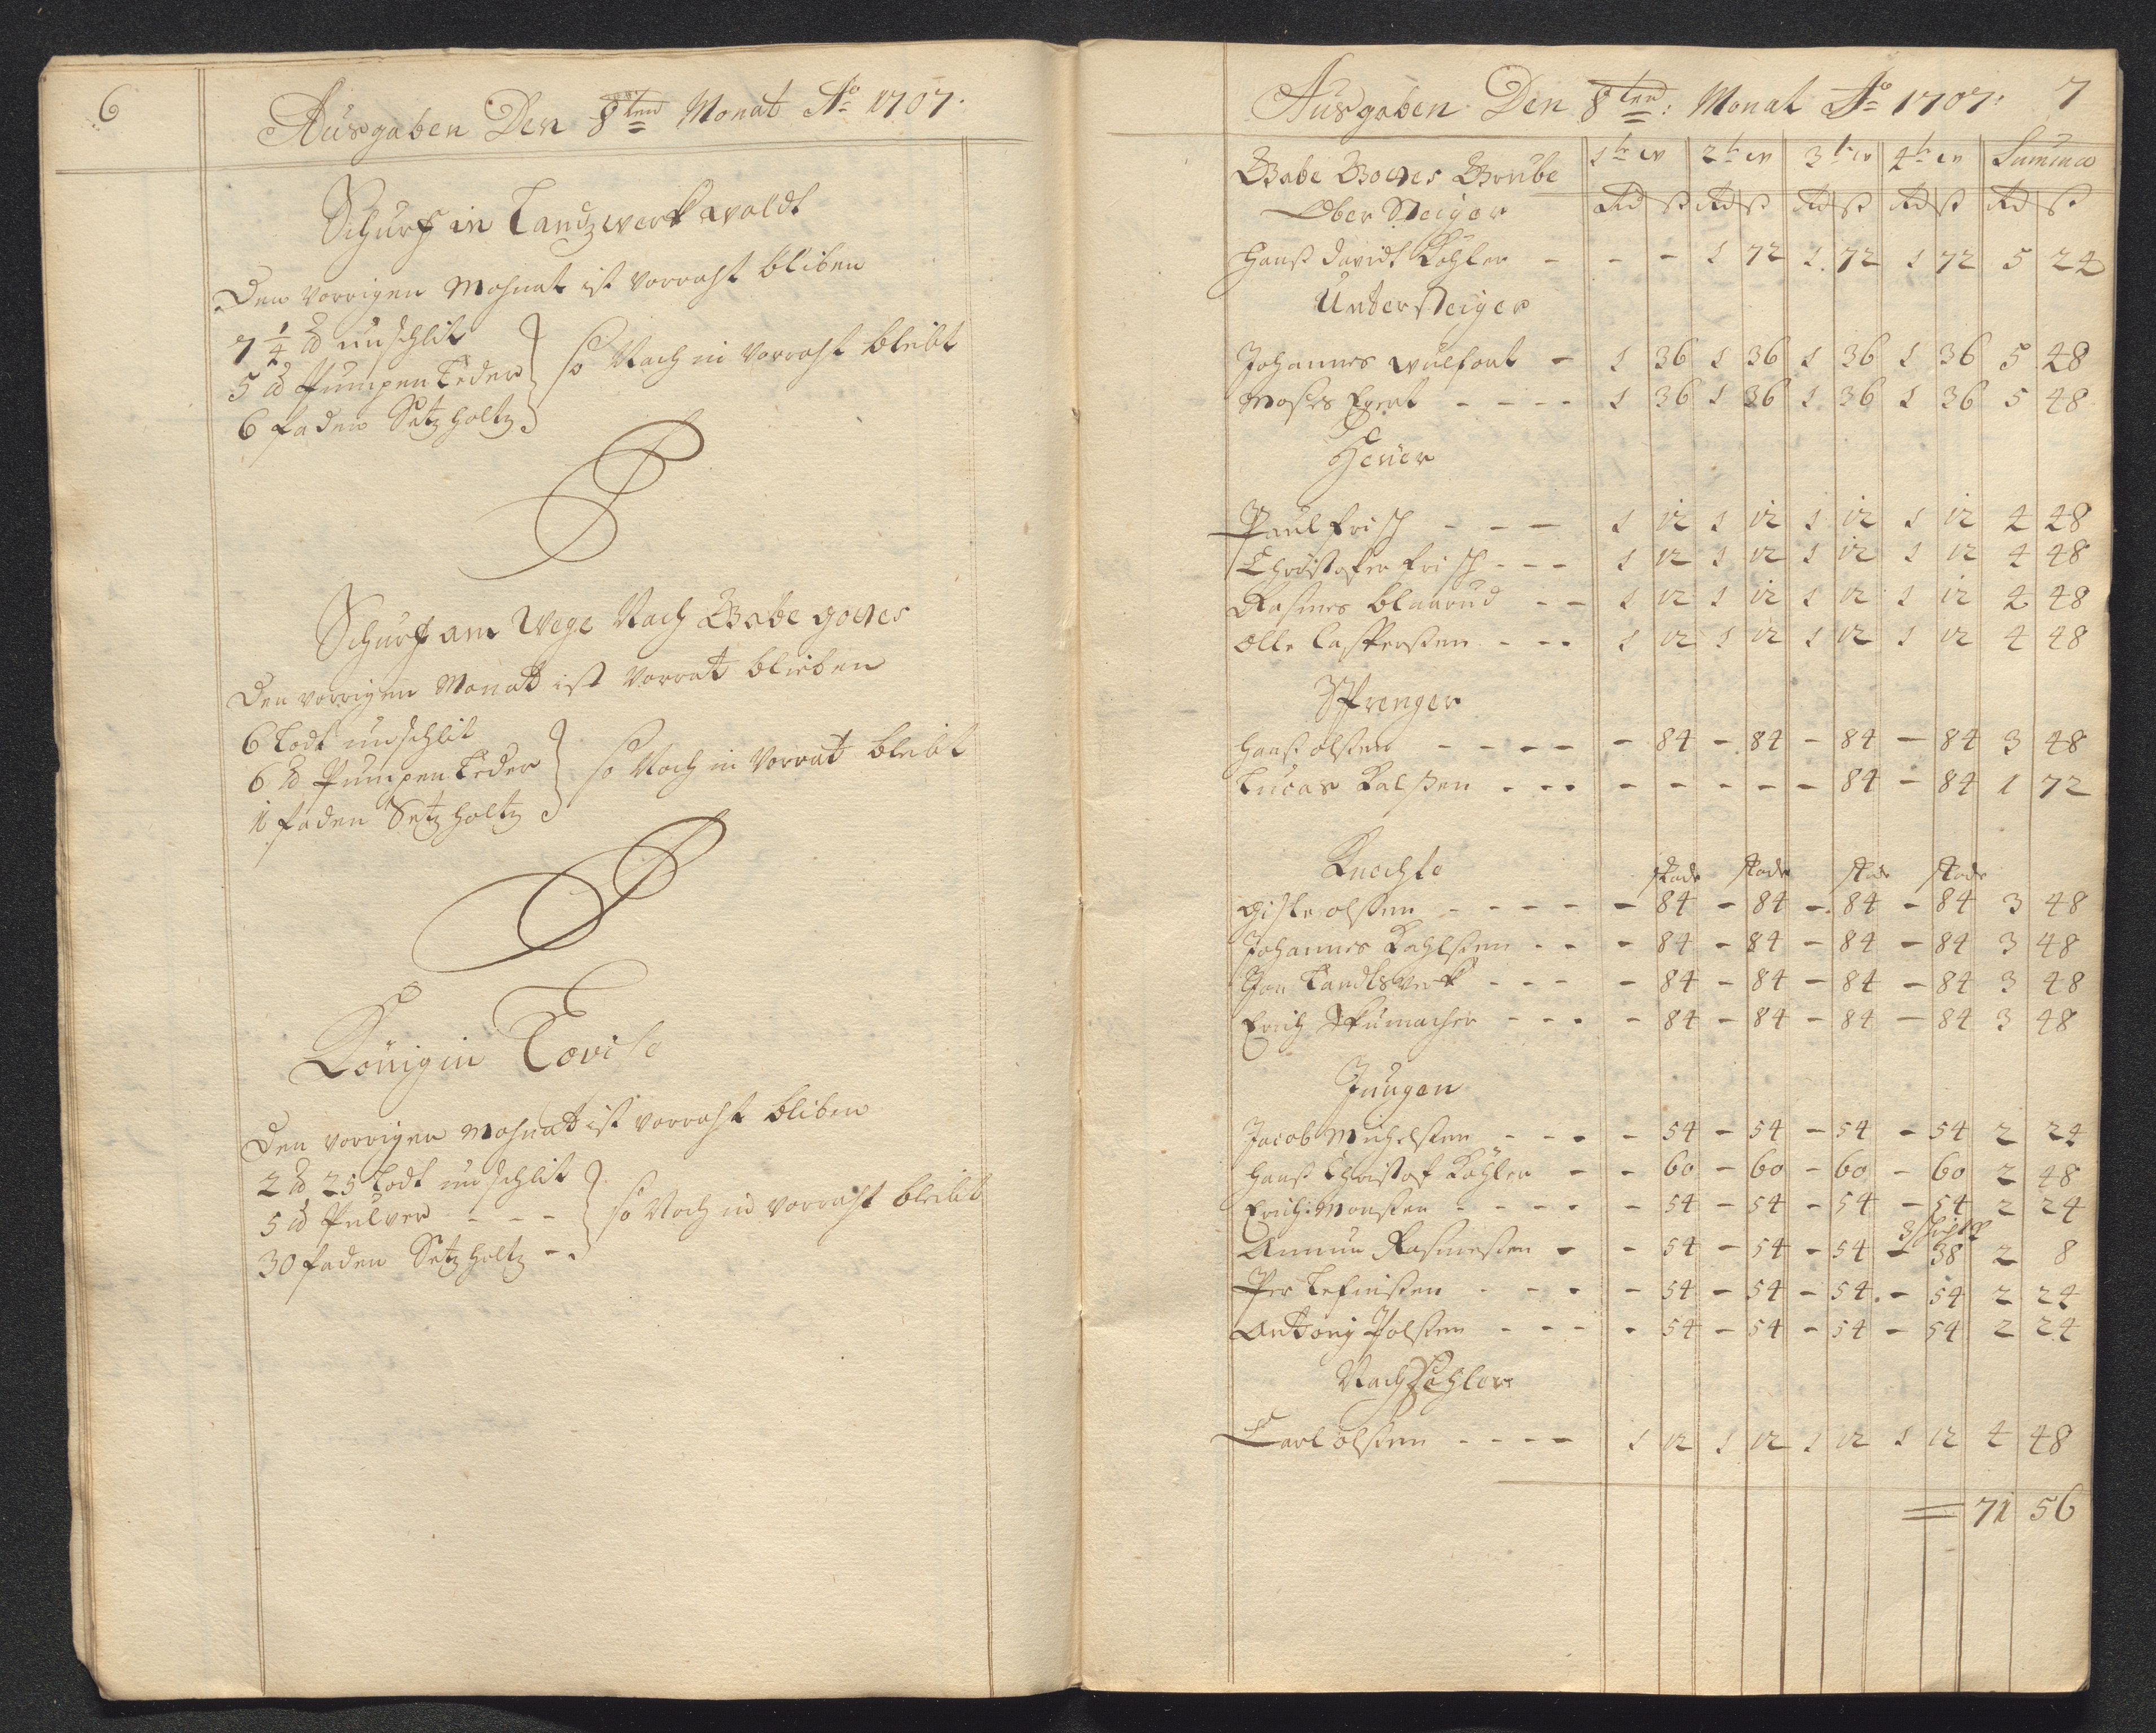 6
Ausgaben Den 8ten Monat Ao 1707.
Schurf in Landzwerk waldt
Den vorrigen Mohnat ist vorraht bliben
7 1/4 ℔ unschlit
5 ℔ Pumpen Leder
6 faden Setzholtz
so Noch in vorraht bleibt
Schurf am Wege Nach Gabe gottes
Den vorrigen Monat ist vorrat blieben
6 Lodt unschlit
6 ℔ Pumpen Leder
faden Setzholtz
so Noch in vorrat bleibt
Königin Lovisе
Den vorrigen Mohnat ist vorraht bliben
2 ℔ 25 Lodt unschlit
5 ℔ Pulver - - -
30 faden Setzholtz -
so Noch in vorraht bleibt
Ausgaben Den 8ten: Monat Ao 1707: 7
Gabe Gottes Grube 1te w 2te w 3te w 4te w Summa
Ober Steiger Rd ß Rd ß Rd ß Rd ß Rd ß
Hanß davidt Köhler - - - 1 72 1 72 1 72 5 24
Untersteiger
Johannes wulfart - 1 36 1 36 1 36 1 36 5 48
Moses - - - - 1 36 1 36 1 36 1 36 5 48
Heüer
Paul frisch - - - 1 12 1 12 1 12 1 12 4 48
Christofer frisch - - - 1 12 1 12 1 12 1 12 4 48
Rasmus blaarud - - 1 12 1 12 1 12 1 12 4 48
olle casperßen - - - 1 12 1 12 1 12 1 12 4 48
Sprenger
Hanß olßen - - - - - 84 - 84 - 84 - 84 3 48
Lucas Kalßen - - - - - - - - - 84 - 84 1 72
Knechte
olßen - - - - - 84 - 84 - 84 - 84 3 48
Johannes Kahlßen - - - 84 - 84 - 84 - 84 3 48
Jon Landtswerk - - - - 84 - 84 - 84 - 84 3 48
Erich Skumacher - - - - 84 - 84 - 84 - 84 3 48
Jungen
Jacob Michelßen - - - - 54 - 54 - 54 - 54 2 24
Hanß Christof Köhler - - 60 - 60 - 60 - 60 2 48
Erich Monßen - - - - - 54 - 54 - 54 - 54 2 24
3 schicht
Ammun Rasmeßen - - 54 - 54 - 54 - 38 2 8
Per - - - - 54 - 54 - 54 - 54 2 24
Antony Polßen - - - - 54 - 54 - 54 - 54 2 24
Nachzähler
Carl olßen - - - - 1 12 1 12 1 12 1 12 4 48
= 71 56